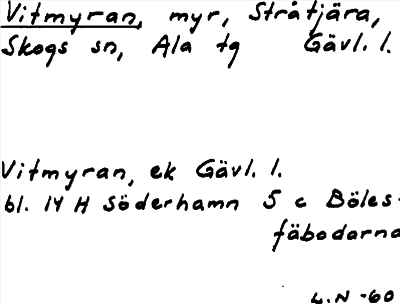 Vitmyran, myr, Stråtjära,
Skogs sn, Ala tg Gävl. l.
Vitmyran, ek Gävl. l.
bl. 14 H Söderhamn 5 c Böles-
fäbodarna
L.N -60